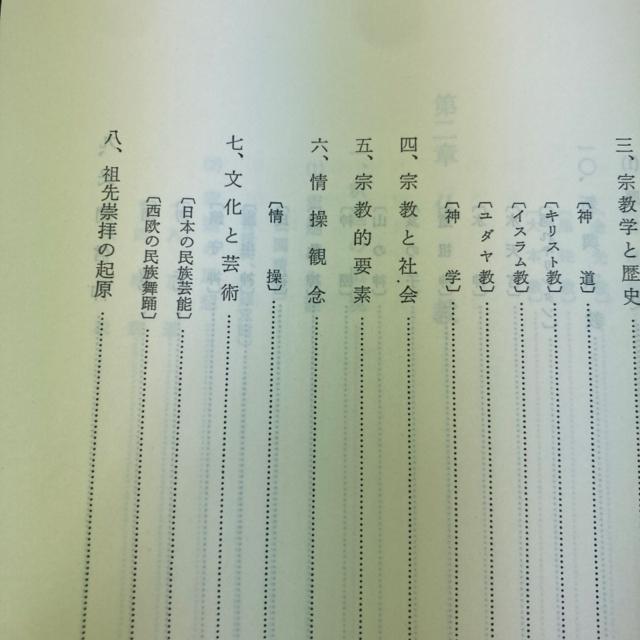 三、宗教学と歴史
〔神道〕
〔キリスト教〕
〔イスラム教〕
〔ユダヤ教〕
〔神学〕
四、宗教と社会
五、宗教的要素
六、情操観念
〔情操〕
七、文化と芸術
〔日本の民族芸能〕
〔西欧の民族舞踊〕
八、祖先崇拝の起原